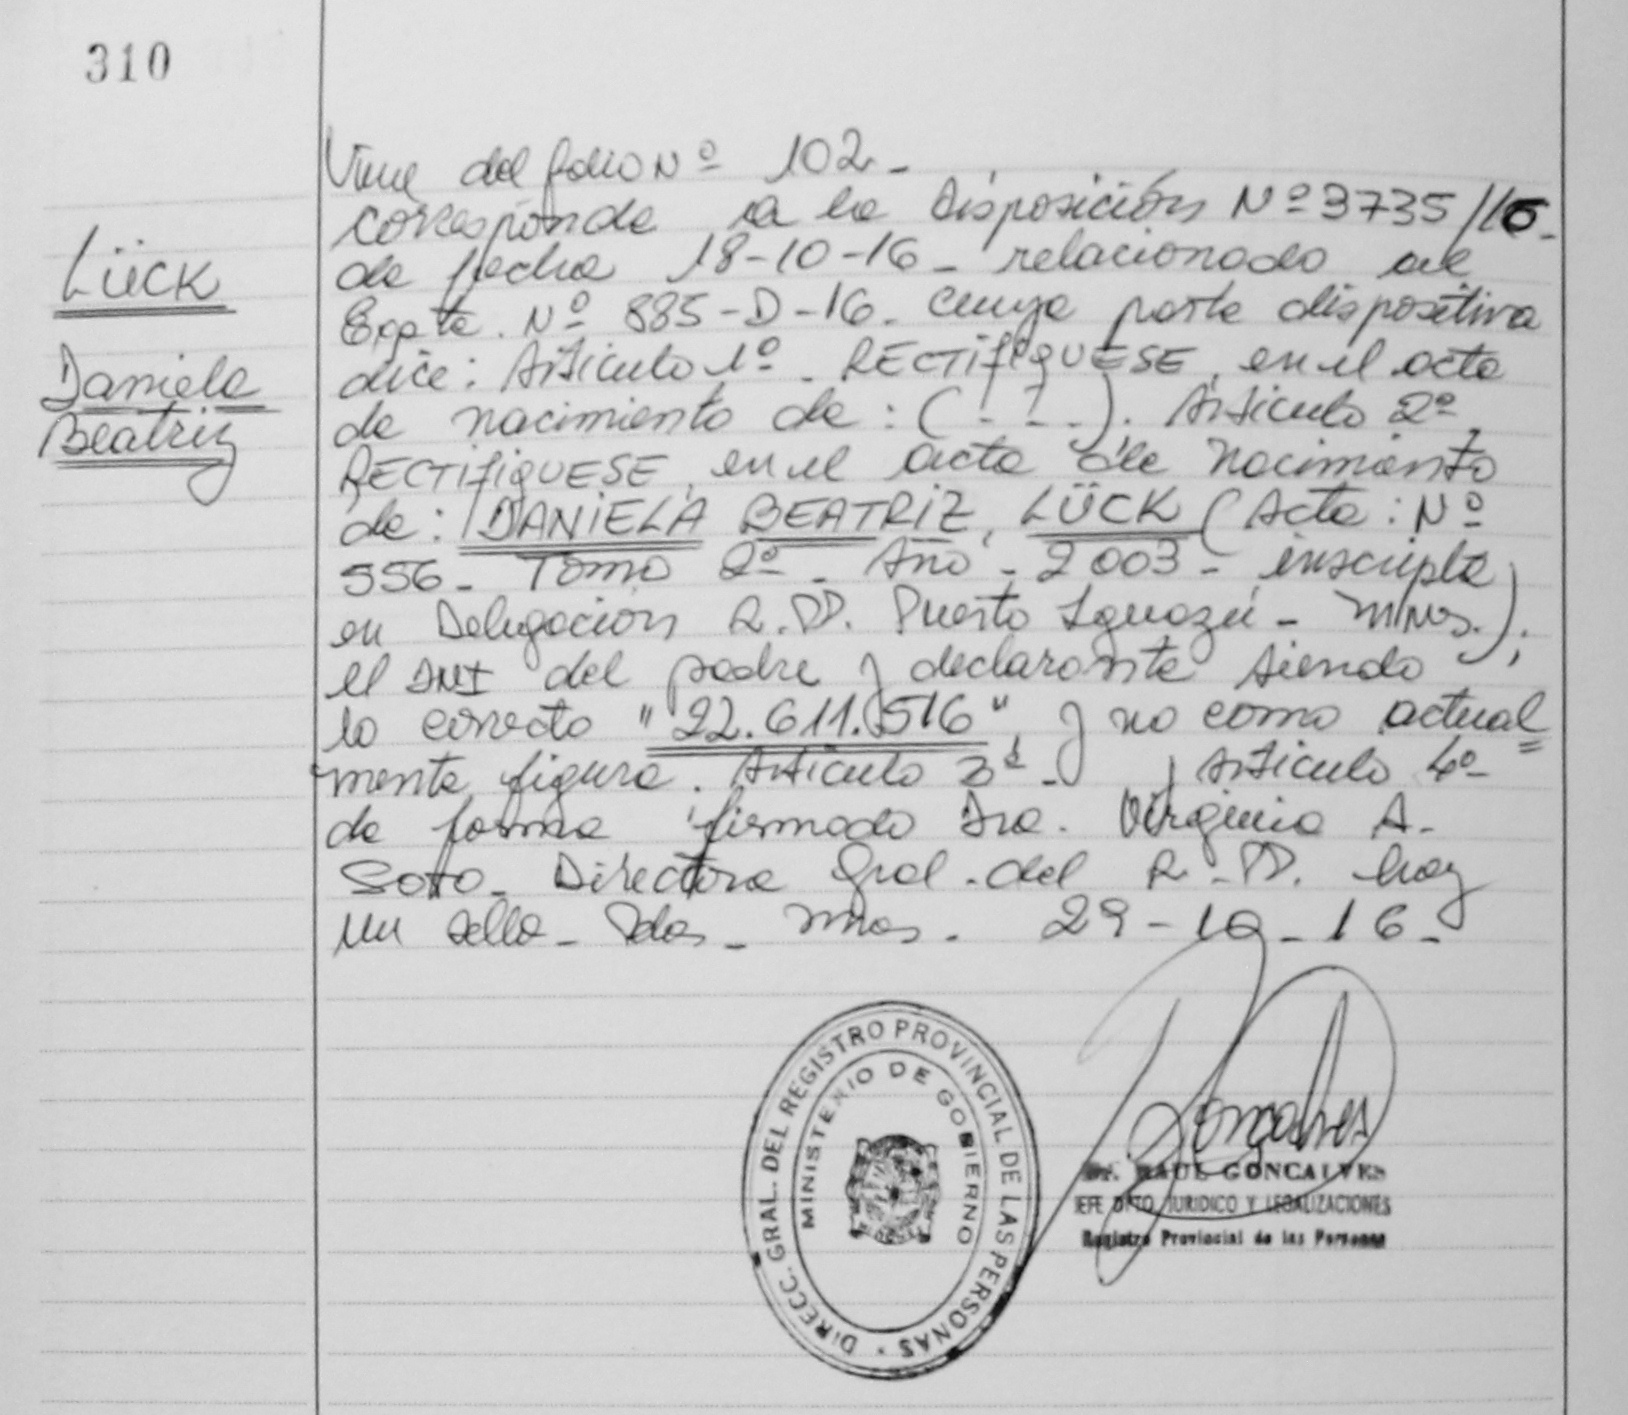 310
Lück
Daniela
Beatriz
Viene del folio Nº 102-
corresponde a la Disposición Nº 3735/16-
de fecha 18-10-16- relacionado al
Expte. Nº 885-D-16- cuya parte dispositiva
dice: Artículo 1º- RECTIFIQUESE, en el acta
de nacimiento de: (- - -). Artículo 2º,
RECTIFIQUESE, en el acta de nacimiento
de: DANIELA BEATRIZ, LÜCK (Acta: Nº
556- Tomo 2º- Año- 2003- inscripta
en Delegación R.PP. Puerto Iguazú- Mnes.);
el DNI del padre y declarante siendo
lo correcto "22.611.516", y no como actual=
mente figura. Artículo 3º- y Artículo 4º-
de forma firmado Dra. Virginia A.
Soto- Directora Gral. del R.PP. hay
un sello- Pdas- Mnes. 29-10-16-
DIRECC. GRAL. DEL REGISTRO PROVINCIAL DE LAS PERSONAS
MINISTERIO DE GOBIERNO
Goncalves
Dr. RAUL GONCALVES
JEFE DPTO. JURIDICO Y LEGALIZACIONES
Registro Provincial de las Personas